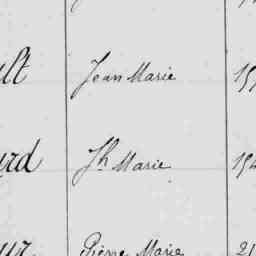 ult Jean Marie 15
urd Jh Marie 194
ur Pierre Marie 21